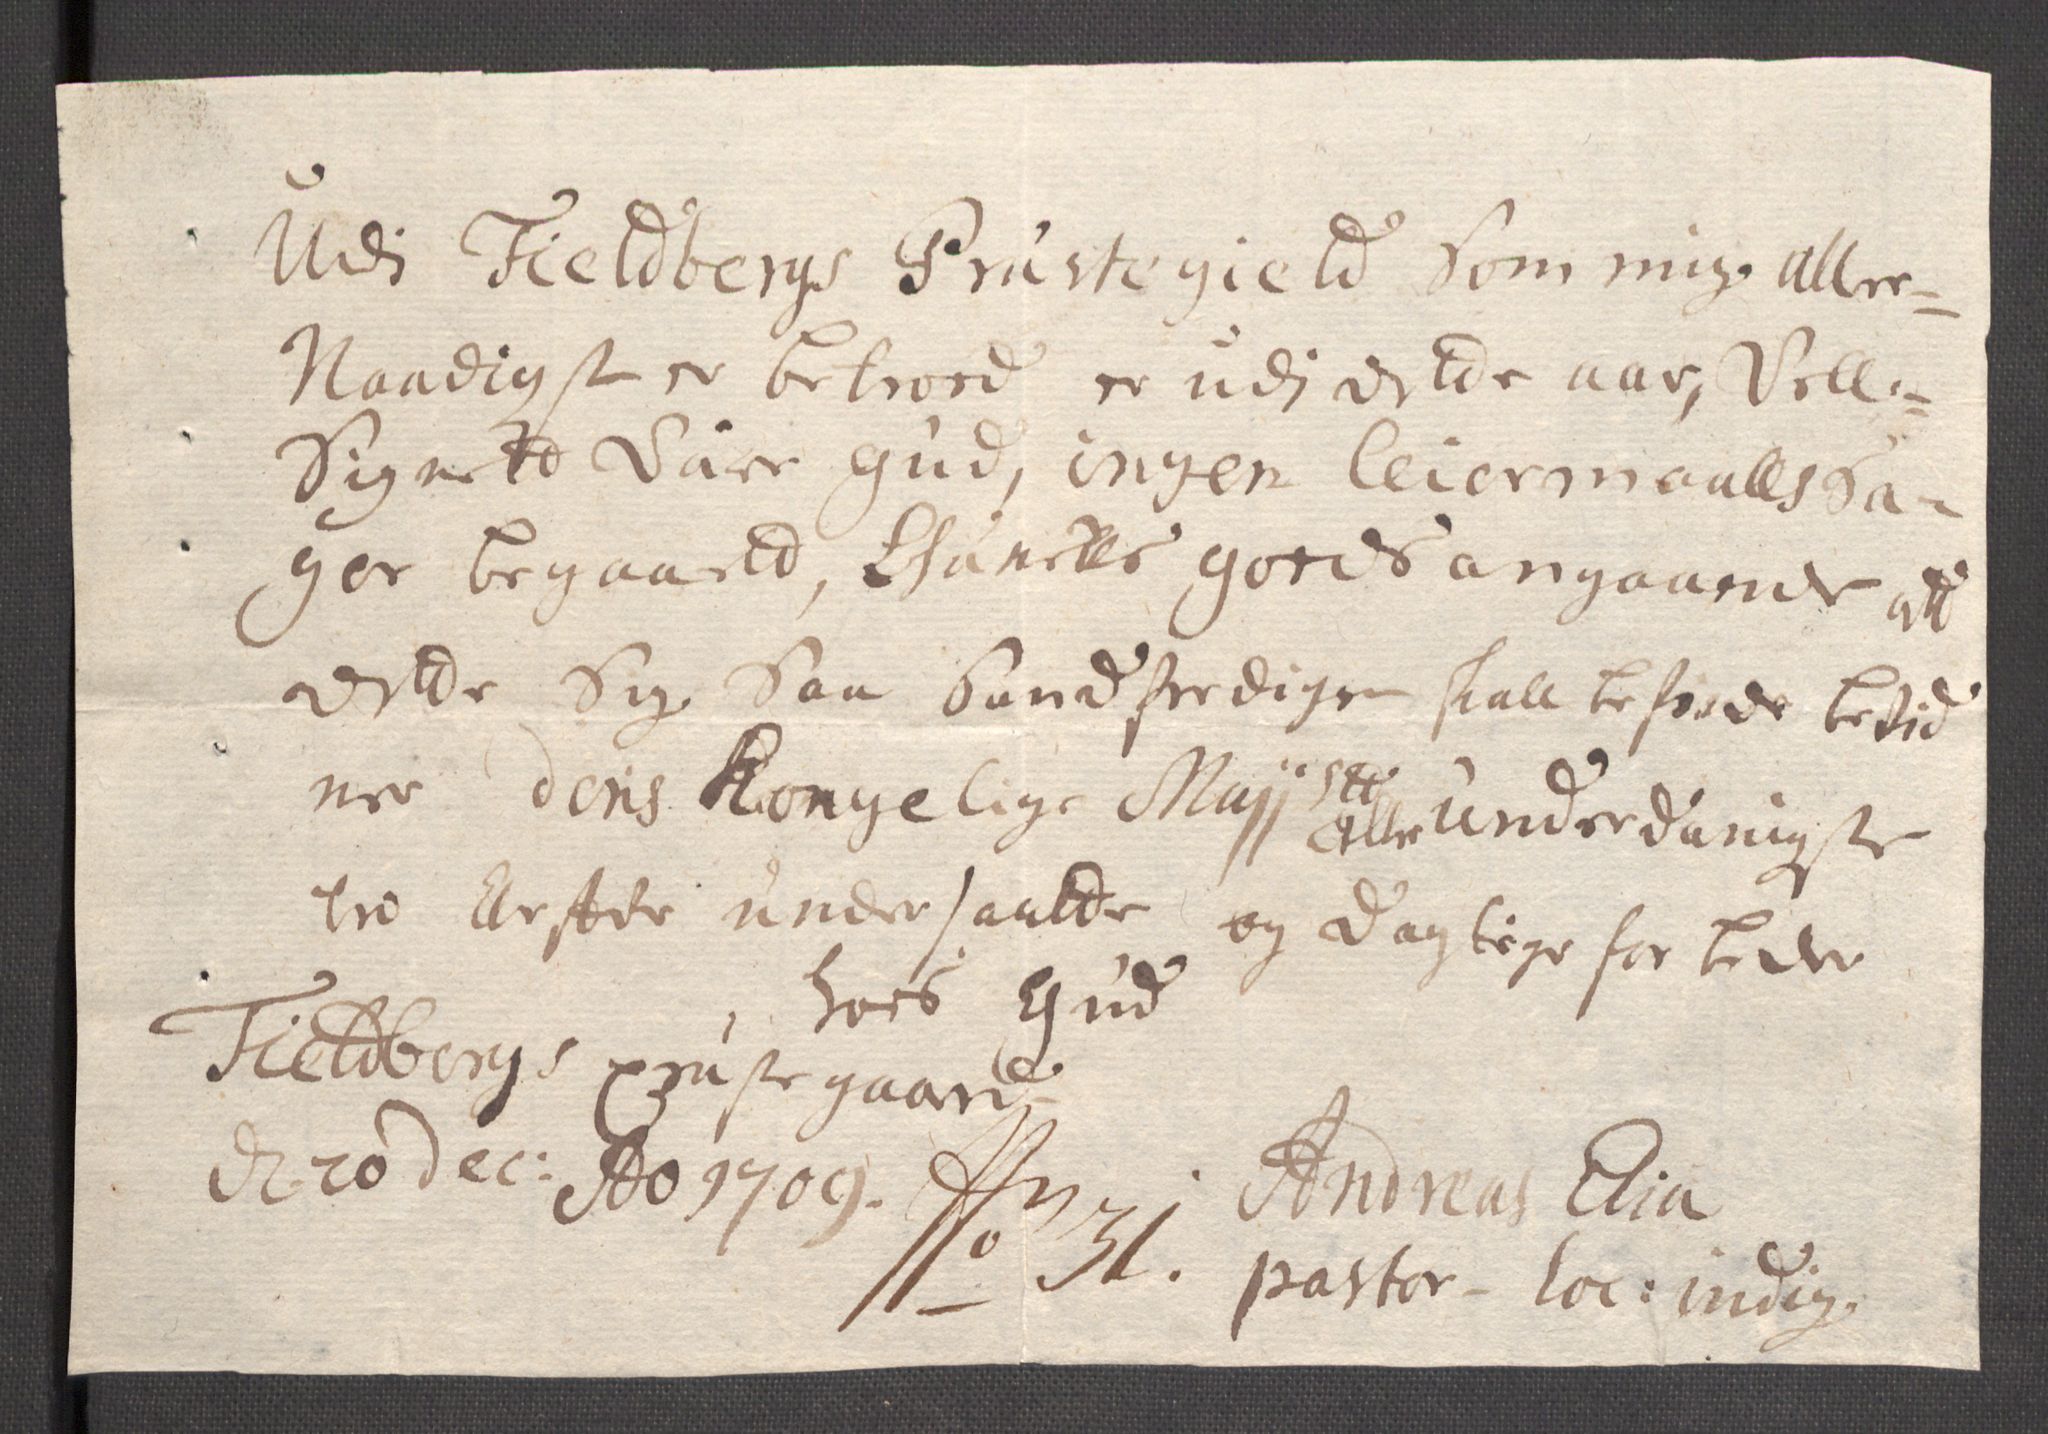 Udi Fieldbergs Præstegield Som mig aller=
Naadigst er betroed er udi dette aar, Vell=
Signett Være Gud, ingen leiermaalls Sa-
ger begaaett, Chünells goeds angaaende att
dette Sig Saa Sandferdigen skall befinde betid
ner dens Kongelige Majjstt allerunderdanigste
tro Arfve undersaatte og daglige for beder
hoes Gud
Fieldbergs præstegaard
d 20 Dec: Ao 1709.
No 31.
Andreas Elia
pastor - loc: indig.